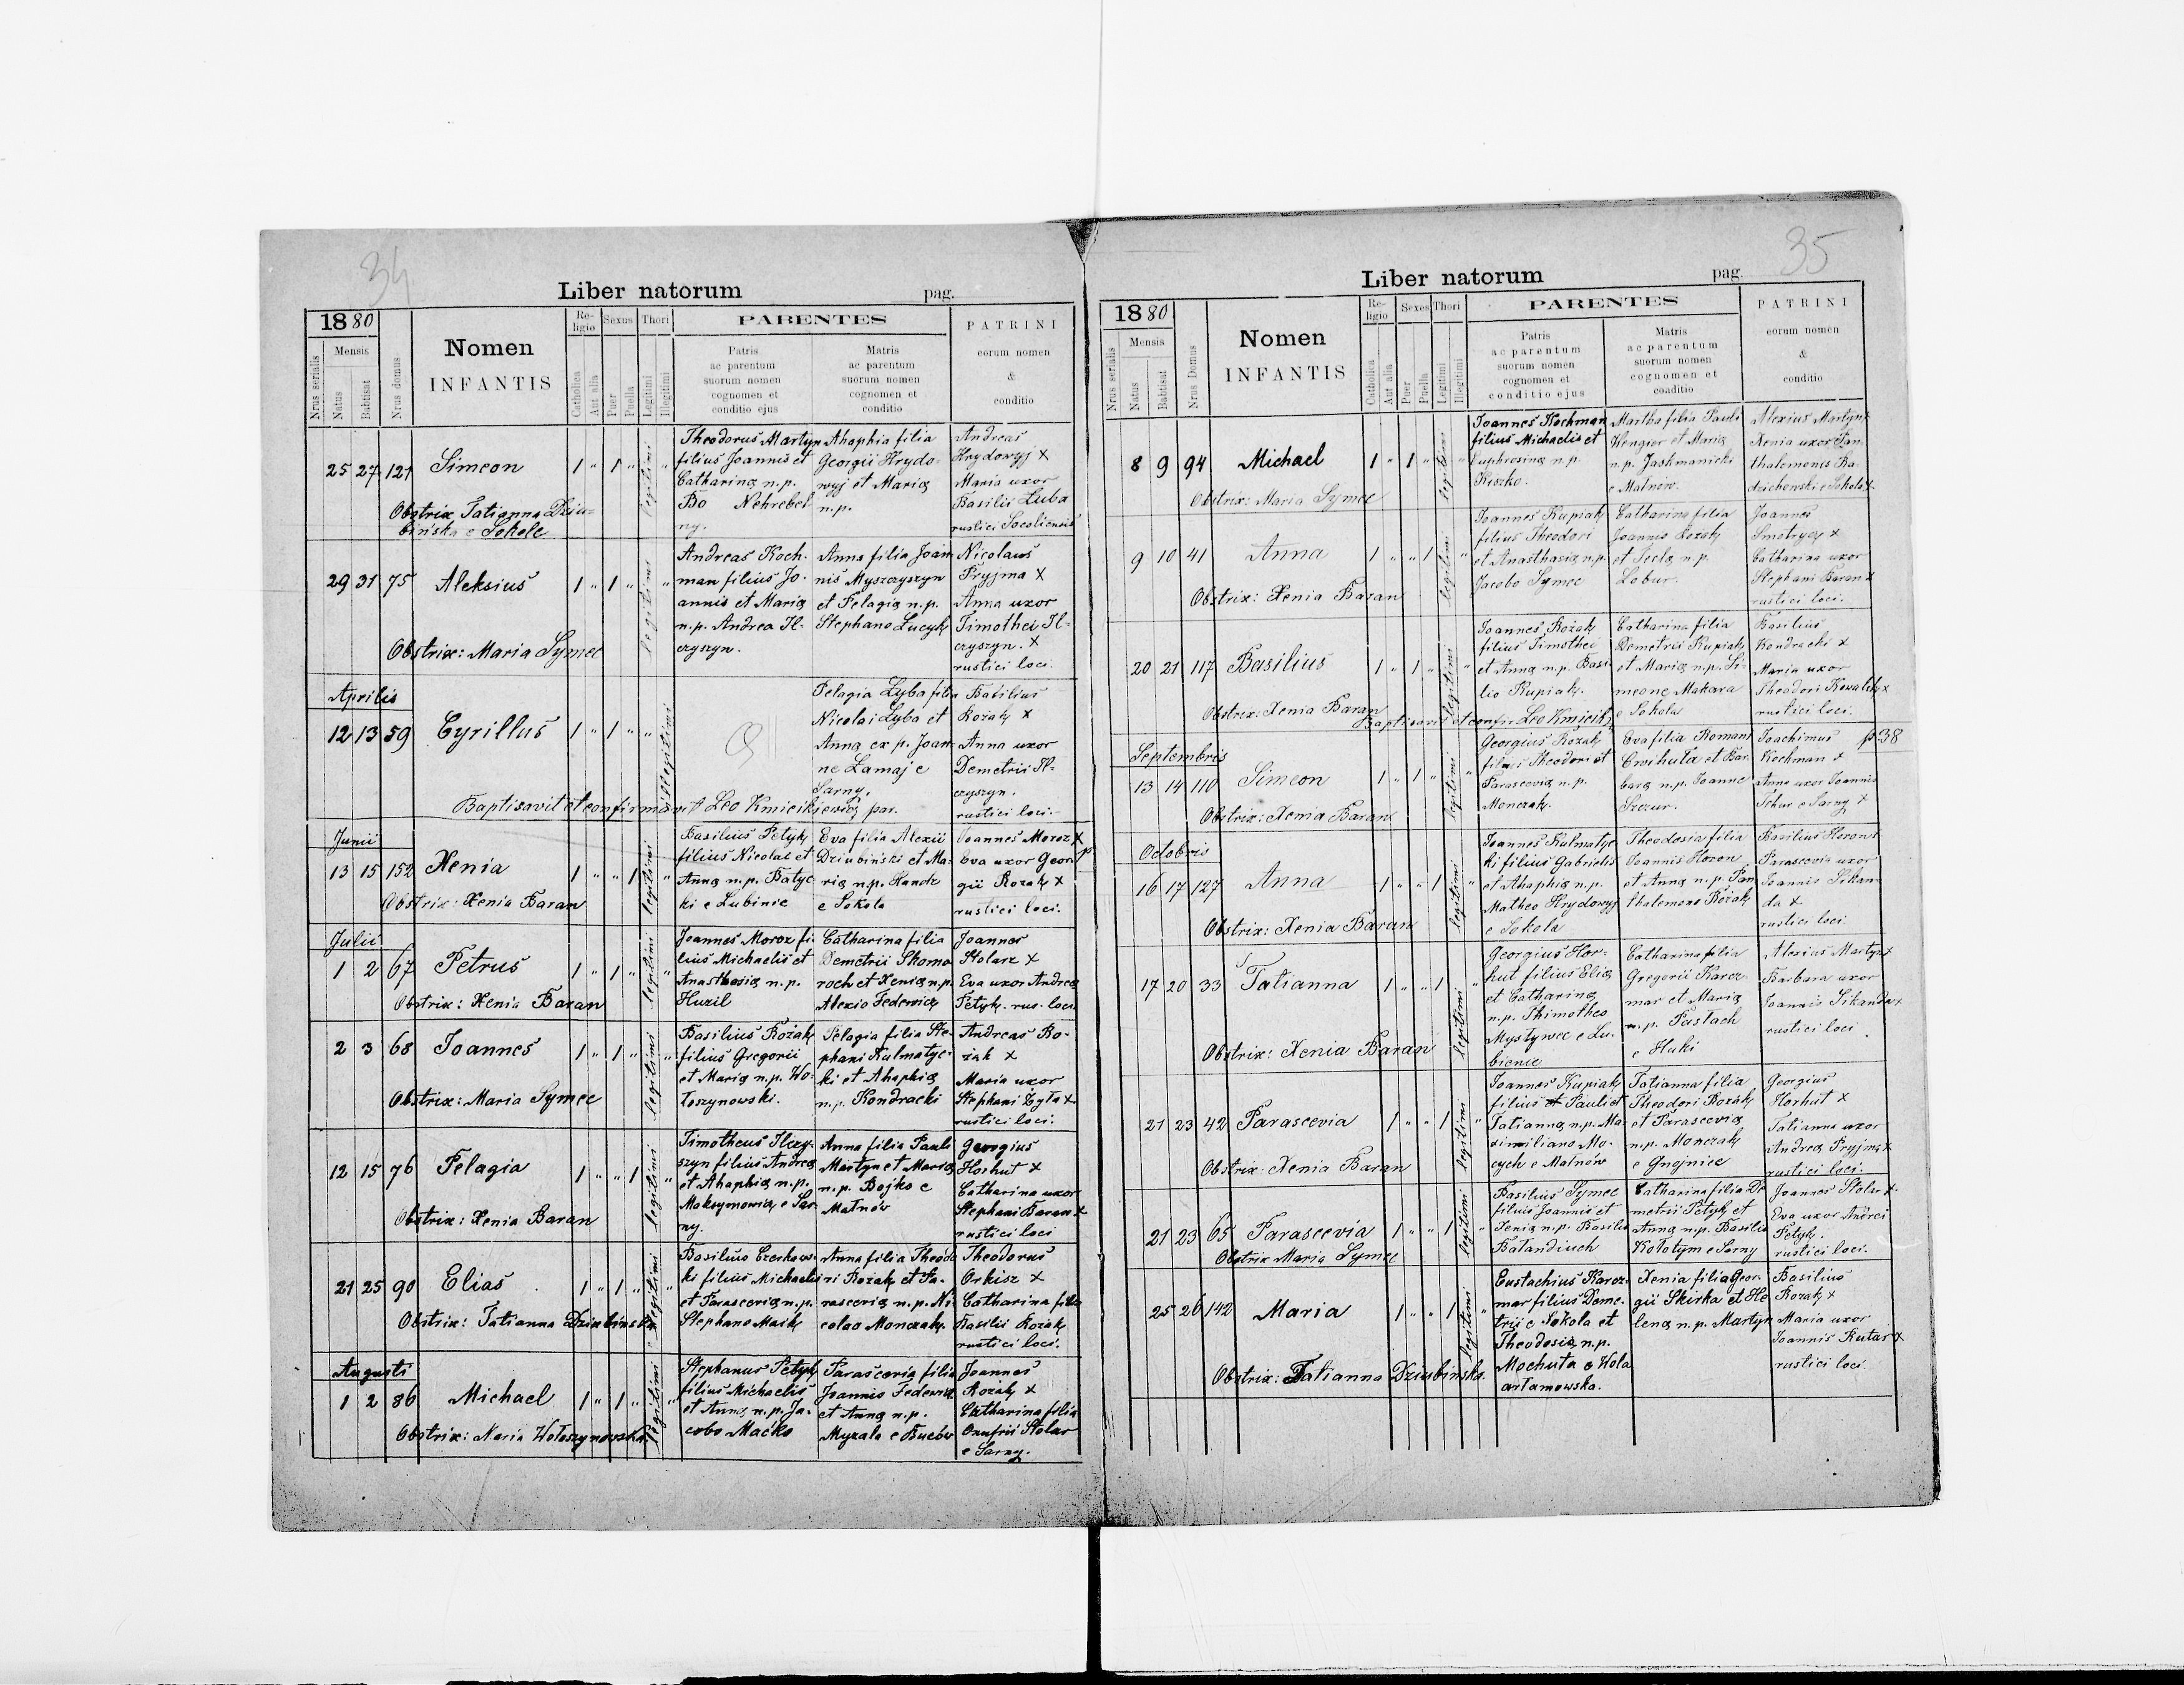 34
Liber natorum pag.
1880
Nrus serialis
Mensis
Natus
Babtisat
Nrus domus
Nomen
INFANTIS
Religio
Catholica
Aut alia
Sexus
Puer
Puella
Thori
Legitimi
Illegitimi
PARENTES
Patris
ac parentum
suorum nomen
cognomen et
conditio ejus
Matris
ac parentum
suorum nomen
cognomen et
conditio
PATRINI
eorum nomen
&
conditio
25 27 121 Simeon 1 " 1 " legitimi "
Obstrix Tatianna Dziu=
bińska e Sokole
Theodorus Martyn
filius Joannis et
Catharina n. p.
Bo Nehrebel
ny.
Ahaphia filia
Georgii Hrydo-
wyj et Maria
n. p.
Andreas
Hrydowyj X
Maria uxor
Basilii Luba
rustici Socoliensis
29 31 75 Aleksius 1 " 1 " legitimi "
Obstrix: Maria Symec
Andreas Koch-
man filius Jo-
annis et Maria
n. p. Andrea Il-
czyszyn.
Anna filia Joan
nis Myszczyszyn
et Pelagia n. p.
Stephano Lucyk
Nicolaus
Pryjma X
Anna uxor
Timothei Il=
czyszyn. X
rustici loci.
Aprilis
12 13 59 Cyrillus 1 " 1 " " illegitimi
Baptisavit et confirmavit Leo Kmicikiewicz par.
Pelagia Lyba filia
Nicolai Lyba et
Anna ex p. Joan
ne Lamaj e
Sarny.
Basilius
Kozak X
Anna uxor
Demetrii Il-
czyszyn.
rustici loci.
Junii
13 15 152 Xenia 1 " " 1 legitimi "
Obstrix: Xenia Baran
Basilius Petyk
filius Nicolai et
Anna n. p. Batyc
ki e Lubinie
Eva filia Alexii
Dziubiński et Ma-
ria n. p. Handz
e Sokola
Joannes Moroz X
Eva uxor Geor-
gii Kozak X
rustici loci.
Julii
1 2 67 Petrus 1 " 1 " legitimi "
Obstrix: Xenia Baran
Joannes Moroz fi-
lius Michaelis et
Anasthasia n. p.
Huzil
Catharina filia
Demetrii Skomo
roch et Xenia n. p.
Alexio Fedewicz
Joannes
Stolarz X
Eva uxor Andrea
Petyk. rus. loci.
2 3 68 Joannes 1 " 1 " legitimi "
Obstrix: Maria Symec
Basilius Kozak
filius Gregorii
et Maria n. p. Wo-
łoszynowski.
Pelagia filia Ste-
phani Kulmatyc-
ki et Ahaphia
n. p. Kondracki
Andreas Ko-
zak X
Maria uxor
Stephani Żyła X
rustici loci.
12 15 76 Pelagia 1 " " 1 legitimi "
Obstrix: Xenia Baran
Timotheus Ilczy-
szyn filius Andrea
et Ahaphia n. p.
Maksymowicz e Sar-
ny.
Anna filia Pauli
Martyn et Maria
n. p. Bojko e
Małnów
Georgius
Horhut X
Catharina uxor
Stephani Baran X
rustici loci
21 25 90 Elias 1 " 1 " legitimi "
Obstrix: Tatianna Dziubińska
Basilius Czerkaws-
ki filius Michaelis
et Parascevia n. p.
Stephano Maik
Anna filia Theodo
ri Kozak et Pa-
rascevia n. p. Ni-
colao Monczak.
Theodorus
Orkisz X
Catharina filia
Basilii Kozak
rustici loci.
Augusti
1 2 86 Michael 1 " 1 " legitimi "
Obstrix: Maria Wołoszynowska
Stephanus Petyk
filius Michaelis
et Anna n. p. Ja-
cobo Maćko
Parascevia filia
Joannis Fedewicz
et Anna n. p.
Myzala e Buców
Joannes
Kozak X
Catharina filia
Onufrii Stolar
e Sarny.
35
Liber natorum pag.
1880
Nrus serialis
Mensis
Natus
Babtisat
Nrus Domus
Nomen
INFANTIS
Religio
Catholica
Aut alia
Sexes
Puer
Puella
Thori
Legitimi
Illegitimi
PARENTES
Patris
ac parentum
suorum nomen
cognomen et
conditio ejus
Matris
ac parentum
suorum nomen
cognomen et
coaditio
PATRINI
eorum nomen
&
conditio
8 9 94 Michael 1 " 1 " legitimi "
Obstrix: Maria Symec
Joannes Kochman
filius Michaelis et
Euphrosina n. p.
Kiszko.
Martha filia Pauli
Wengier et Maria
n. p. Jashmanicki
e Małnów.
Alexius Martyn X
Xenia uxor Pan-
thalemonis Ra-
dzichowski e Sokola X
9 10 41 Anna 1 " " 1 legitimi "
Obstrix: Xenia Baran
Joannes Kupiak
filius Theodori
et Anasthasia n. p.
Jacobo Symec
Catharina filia
Joannis Kozak
et Tecla n. p.
Lobur.
Joannes
Smotrycz X
Catharina uxor
Stephani Baran X
rustici loci.
20 21 117 Basilius 1 " 1 " legitimi "
Obstrix: Xenia Baran
Baptisavit et confir Leo Kmicik
Joannes Kozak
filius Timothei
et Anna n. p. Basi
lio Kupiak.
Catharina filia
Demetrii Kupiak
et Maria n. p. Si-
meone Makara
e Sokola
Basilius
Kondracki X
Maria uxor
Theodori Kowalik X
rustici loci.
Septembris
13 14 110 Simeon 1 " 1 " legitimi "
Obstrix: Xenia Baran
Georgius Kozak
filius Theodori et
Parascevia n. p.
Monczak.
Eva filia Romani
Cwihuła et Bar-
bara n. p. Joanne
Szczur.
Joachimus p. 38
Kochman X
Anna uxor Joannis
Tchur e Sarny X
Octobris
16 17 127 Anna 1 " " 1 legitimi "
Obstrix: Xenia Baran
Joannes Kulmatyc
ki filius Gabrielis
et Ahaphia n. p.
Matheo Hrydowyj
e Sokola
Theodosia filia
Joannis Horon
et Anna n. p. Pan
thalemone Kozak
Basilius Horon X
Parascevia uxor
Joannis Sikan-
da X
rustici loci.
17 20 33 Tatianna 1 " " 1 legitimi "
Obstrix: Xenia Baran
Georgius Hor-
hut filius Elia
et Catharina
n. p. Thimotheo
Mystywec e Lu-
bienie
Catharina filia
Gregorii Karcz-
mar et Maria
n. p. Pastach
e Huki
Alexius Martyn X
Barbara uxor
Joannis Sikanda X
rustici loci
21 23 42 Parascevia 1 " " 1 legitimi "
Obstrix: Xenia Baran
Joannes Kupiak
filius et Pauli et
Tatianna n. p. Ma-
ximiliano Mo-
cych e Małnów
Tatianna filia
Theodori Kozak
et Parascevia
n. p. Monczak
e Gnojnice
Georgius
Horhut X
Tatianna uxor
Andrea Pryjma X
rustici loci.
21 23 65 Parascevia 1 " " 1 legitimi "
Obstrix Maria Symec
Basilius Symec
filius Joannis et
Xenia n. p. Basilio
Bałandiuch
Catharina filia De
metrii Petyk et
Anna n. p. Basilio
Kołotym e Sarny
Joannes Stolar X
Eva uxor Andrei
Petyk.
rustici loci.
25 26 142 Maria 1 " " 1 legitimi "
Obstrix: Tatianna Dziubińska.
Eustachius Karcz-
mar filius Deme-
trii e Sokola et
Theodosia n. p.
Mochuta e Wola
artamowska.
Xenia filia Geor-
gii Skirka et He-
lena n. p. Martyn
Basilius
Kozak X
Maria uxor
Joannis Kutas X
rustici loci.